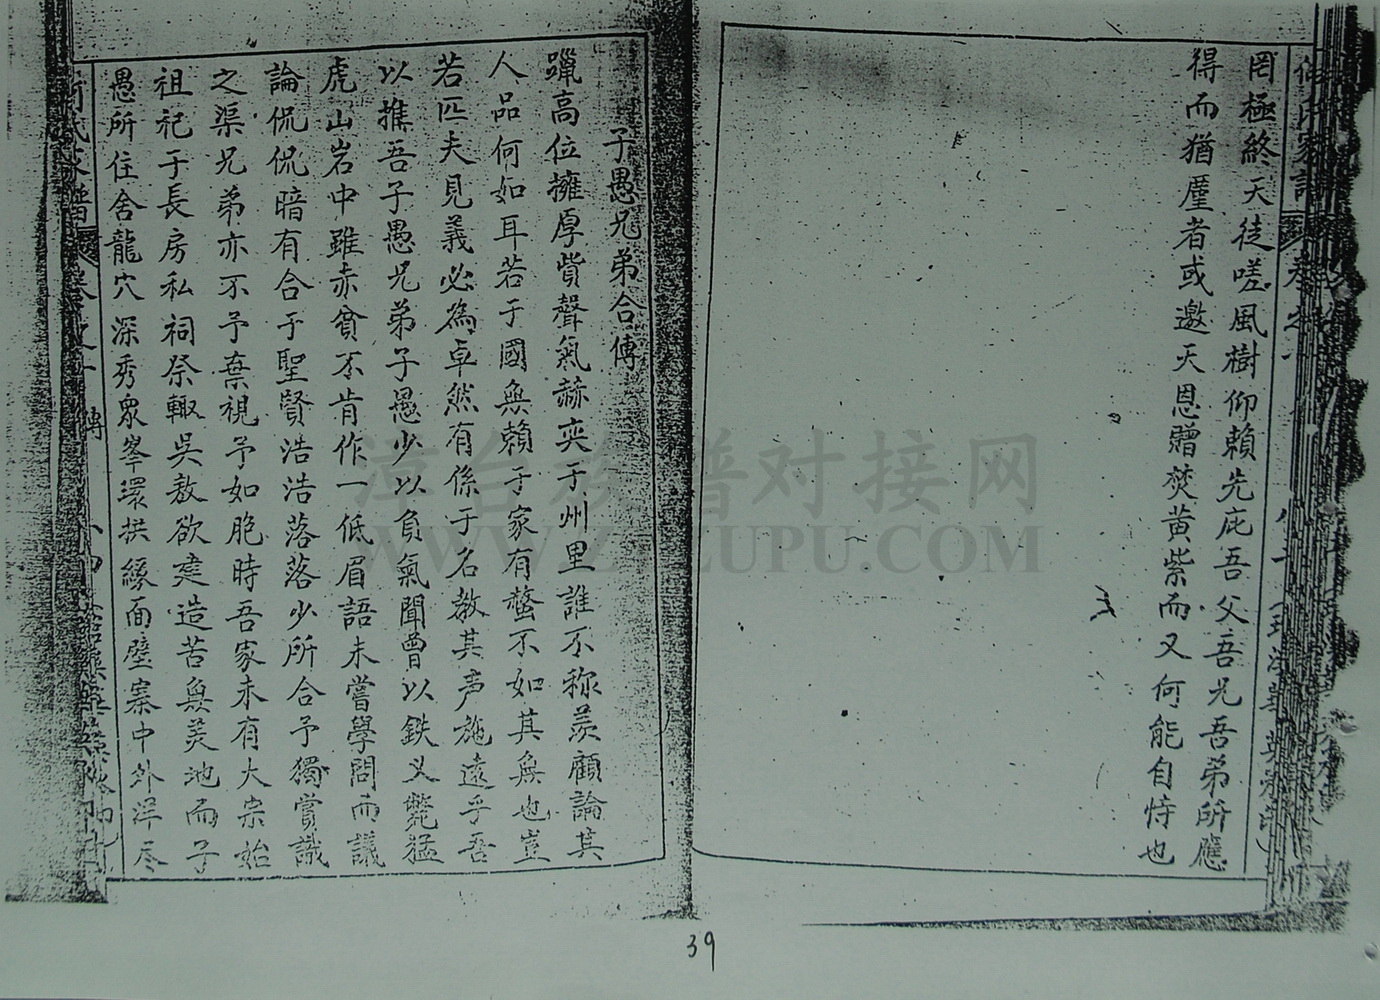 罔極終天徒嗟風樹仰賴先庇吾父吾兄吾弟所應
得而猶厪者或邀天恩贈焚黃紫而又何能自恃也
子愚兄弟合傳
躐高位擁厚貲聲氣赫奕于州里誰不称羨顧論其
人品何如耳若于國無賴于家有螫不如其無也豈
若匹夫見義必為卓然有係于名教其声施遠乎吾
以搉吾子愚兄弟子愚少以負氣聞曾以鉄义斃猛
虎山岩中雖赤貧不肯作一低眉語未嘗學問而議
論侃侃暗有合于聖賢浩浩落落少所合予獨賞識
之渠兄弟亦不予棄視予如胞時吾家未有大宗始
祖祀于長房私祠祭輙吳敖欲建造苦無美地而子
愚所住舍龍穴深秀衆峯環拱緣面壁寨中外洋尽
氏家譜 卷之 傳
漳台族谱对接网
WWW.ZTZUPU.COM
39